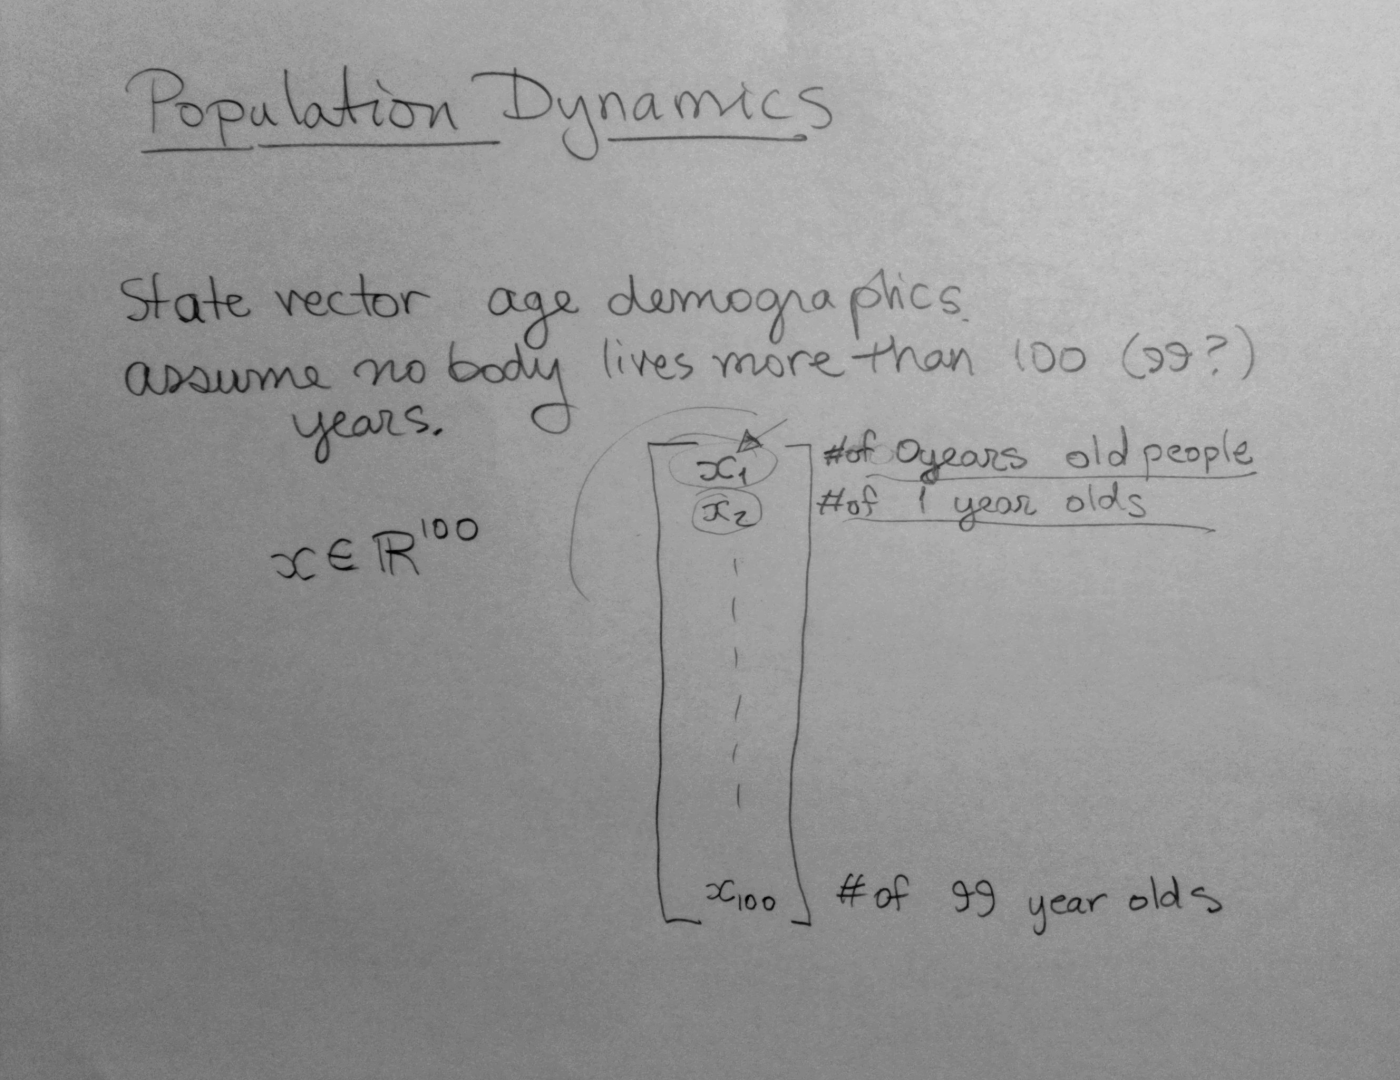 Population Dynamics
State vector age demographics.
assume no body lives more than 100 (99?)
years.
x₁ #of 0years old people
x₂ #of 1 year olds
x ∈ ℝ¹⁰⁰
x₁₀₀ # of 99 year olds